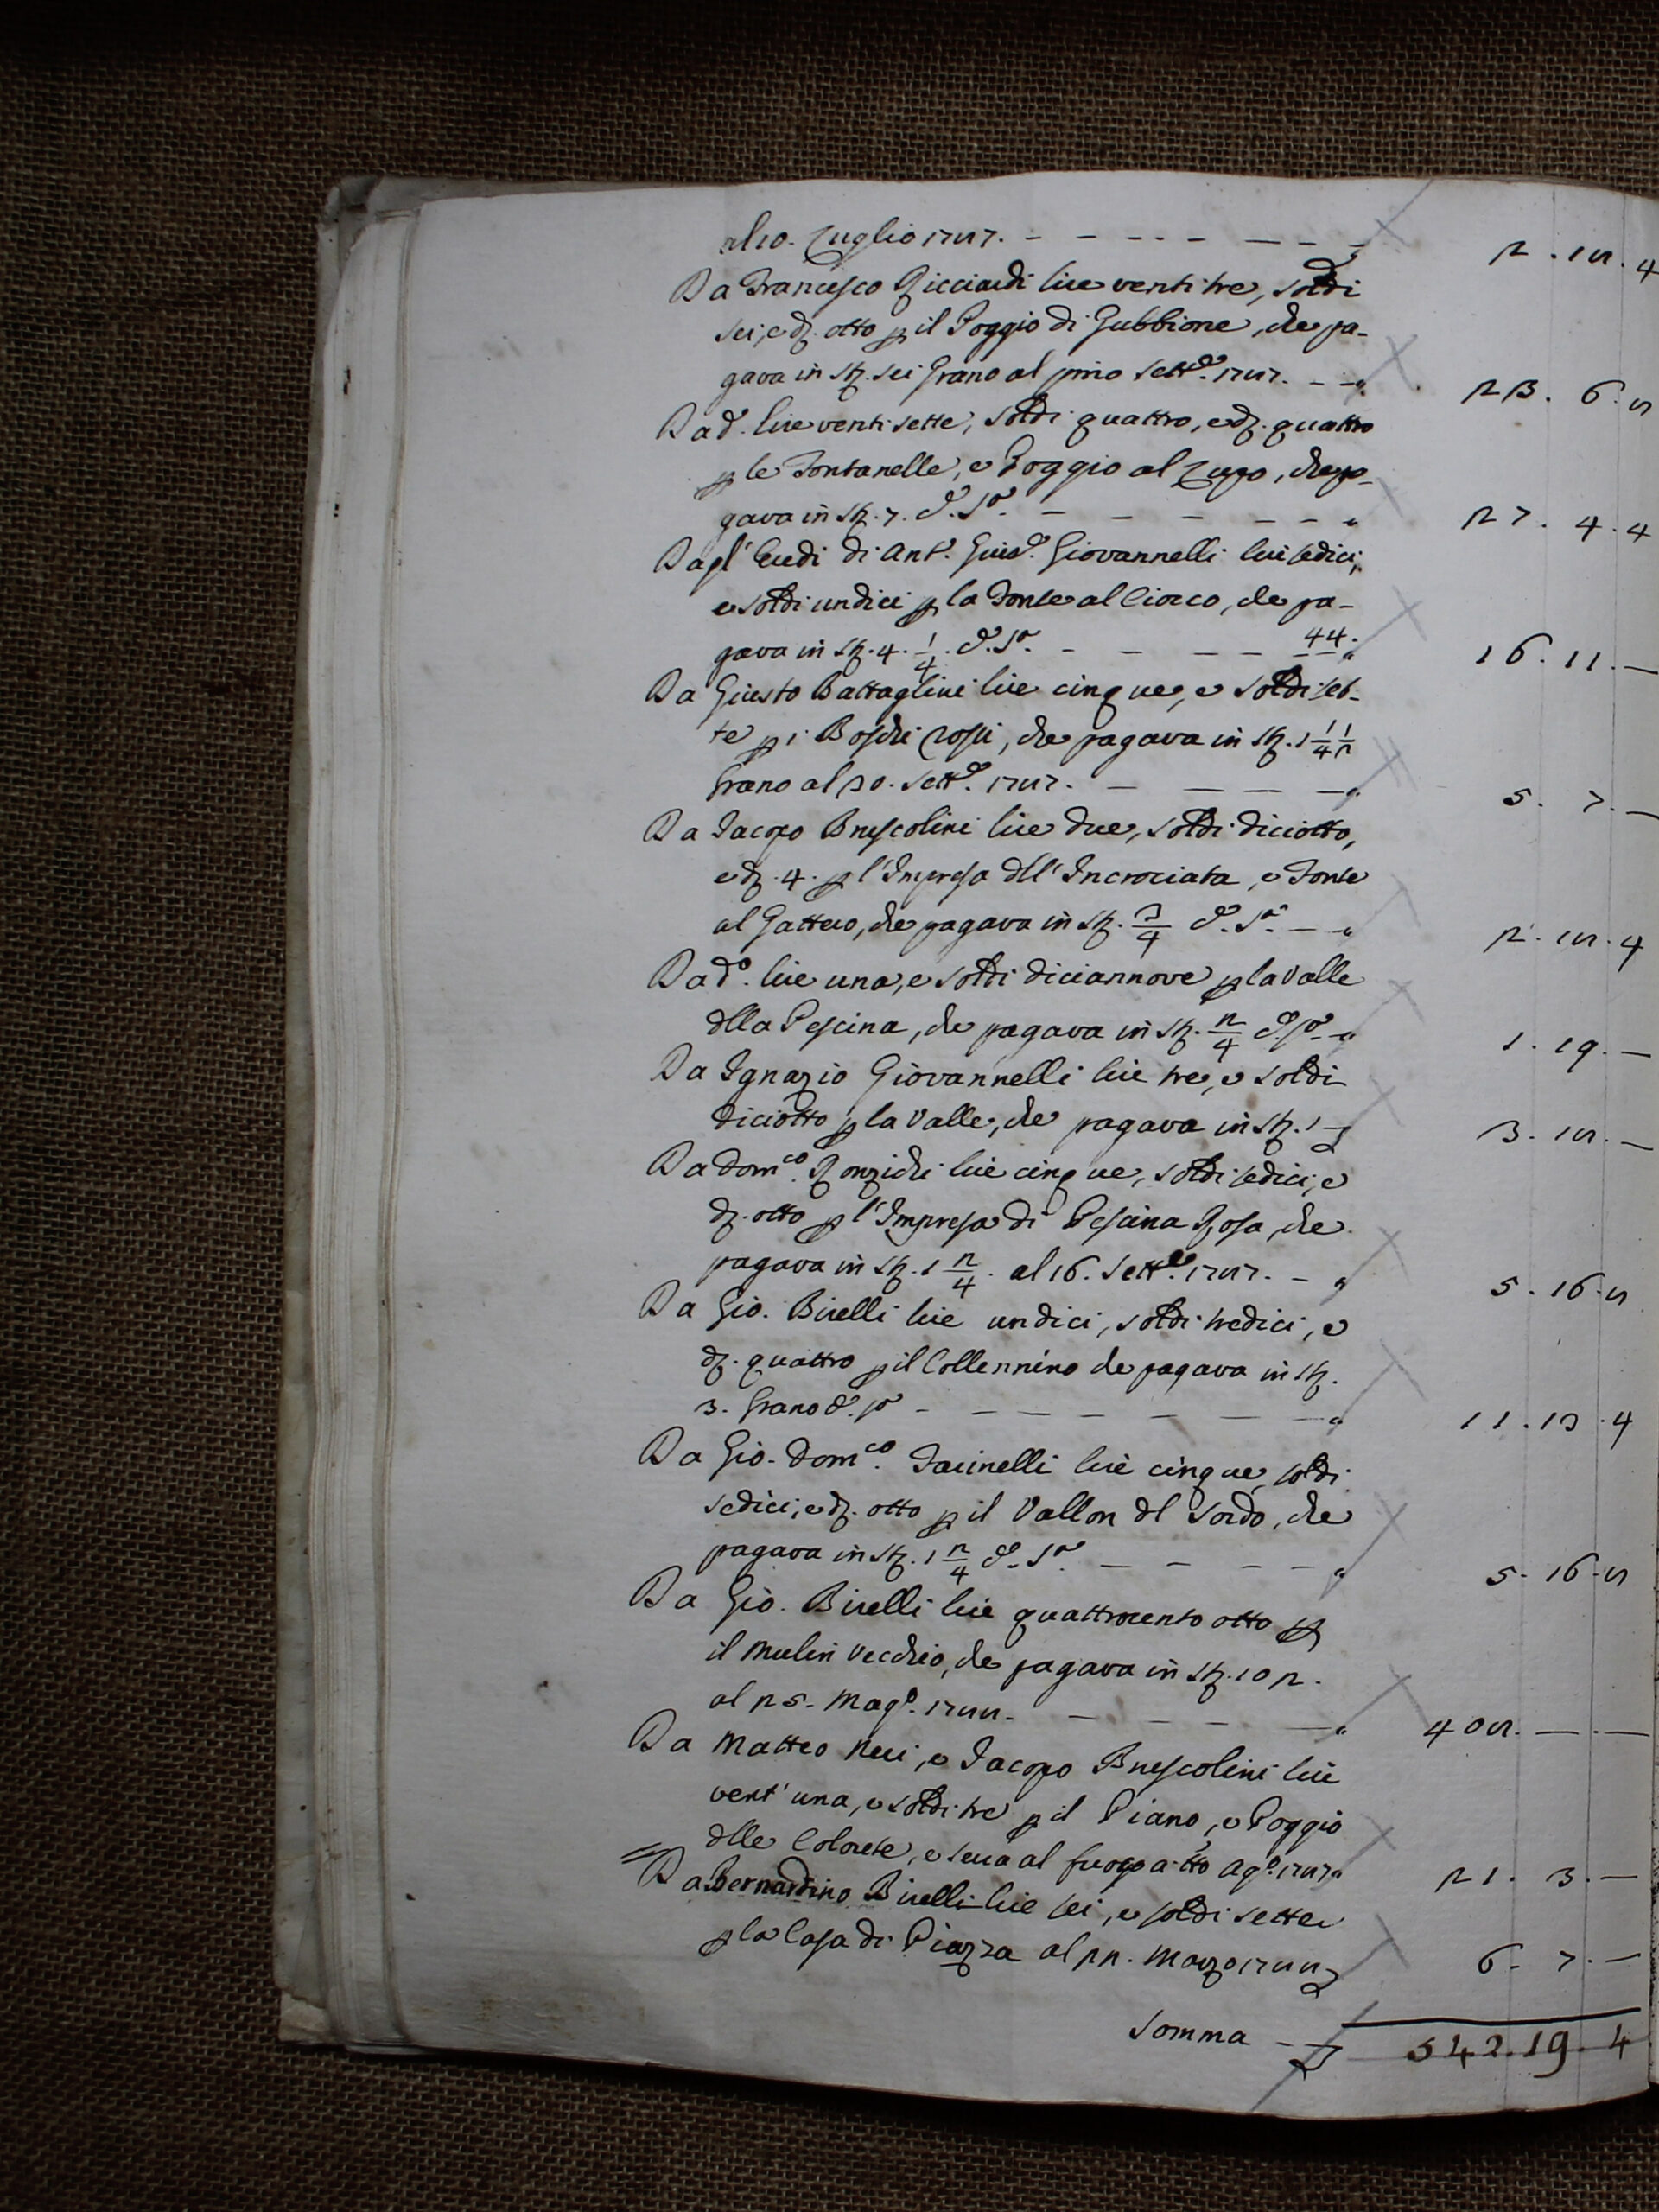 al 10. Luglio 1787. - - - - - - - - " 2. 18. 4
Da Francesco Ricciardi lire venti tre, soldi
sei, e d. otto p il Poggio di Gubbione, che pa-
gava in st. sei Grano al pmo Sett.e 1787. - - " 23. 6. 8
Da d.o lire venti sette, soldi quattro, e d. quattro
p le Fontanelle, e Poggio al Lupo, che pa-
gava in st. 7. d.o S.o - - - - - - " 27. 4. 4
Dagl' Eredi di Ant.o Gius.e Giovannelli lire sedici,
e soldi undici p la Fonte al Ciocco, che pa-
gava in st. 4. 1/4. d.o S.o - - - - 44. " 16. 11. —
Da Giusto Battaglini lire cinque, e soldi set-
te p i Boschi rossi, che pagava in st. 1 1/4 1/2
Grano al 30. Sett.e 1787. - - - - " 5. 7. —
Da Jacopo Bruscolini lire due, soldi diciotto,
e d. 4. p l'Impresa dll' Incrociata, e Fonte
al Gattero, che pagava in st. 3/4 d.o S.o - " 2. 18. 4
Da d.o lire una, e soldi diciannove p la Valle
dlla Pescina, che pagava in st. 2/4 d.o S.o - " 1. 19. —
Da Ignazio Giovannelli lire tre, e soldi
diciotto p la Valle, che pagava in st. 1 - " 3. 18. —
Da Dom.co Ronzichi lire cinque, soldi sedici, e
d. otto p l'Impresa di Pescina Rosa, che
pagava in st. 1 2/4. al 16. Sett.e 1787. - " 5. 16. 8
Da Gio. Birelli lire undici, soldi tredici, e
d. quattro p il Collennino che pagava in st.
3. Grano d.o S.o - - - - - - - " 11. 13. 4
Da Gio. Dom.co Farinelli lire cinque, soldi
sedici, e d. otto p il Vallon dl Sordo, che
pagava in st. 1 2/4 d.o S.o - - - - " 5. 16. 8
Da Gio. Birelli lire quattrocento otto p
il Mulin Vecchio, che pagava in st. 102.
al 25. Mag.o 1788. - - - - - " 408. — . —
Da Matteo Neri, e Jacopo Bruscolini lire
vent' una, e soldi tre p il Piano, e Poggio
dlle Colorete, e serra al fuoco a tto Ag.o 1787 " 21. 3. —
Da Bernardino Birelli lire sei, e soldi sette
p la Casa di Piazza al 22. Marzo 1788 " 6. 7. —
Somma - - 542. 19. 4